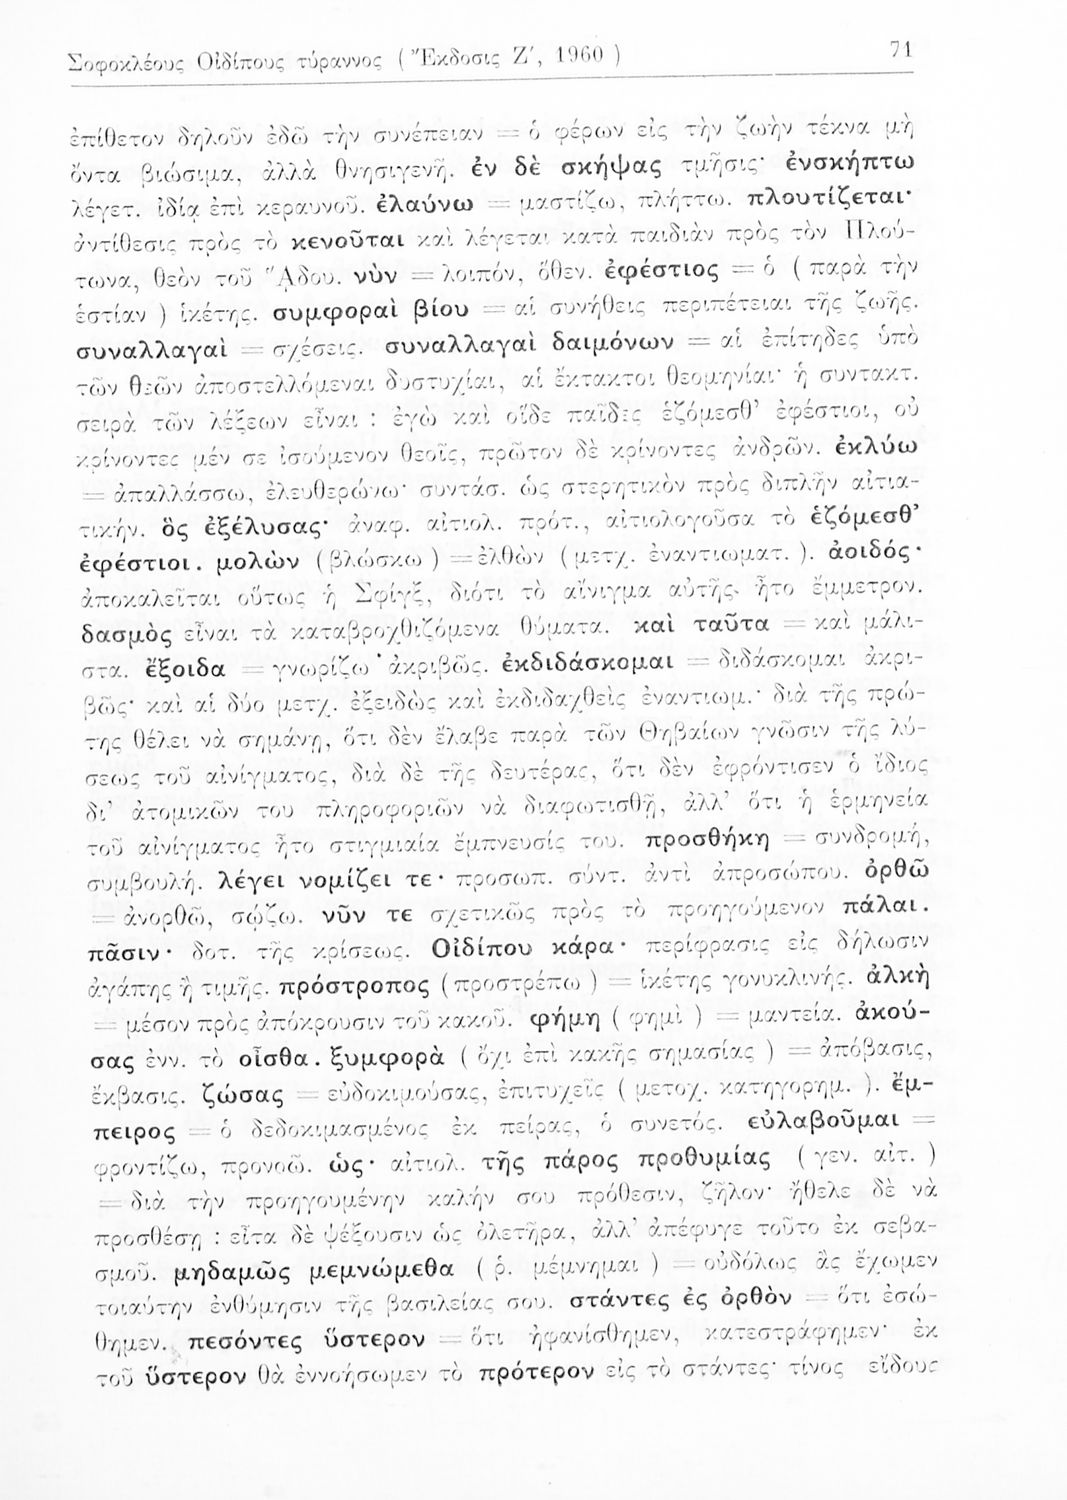 Σοφοκλέους Οἰδίπους τύραννος ( Ἔκδοσις Ζ′, 1960 ) 71
ἐπίθετον δηλοῦν ἐδῶ τὴν συνέπειαν = ὁ φέρων εἰς τὴν ζωὴν τέκνα μὴ
ὄντα βιώσιμα, ἀλλὰ θνησιγενῆ. ἐν δὲ σκήψας τμῆσις· ἐνσκήπτω
λέγετ. ἰδίᾳ ἐπὶ κεραυνοῦ. ἐλαύνω = μαστίζω, πλήττω. πλουτίζεται·
ἀντίθεσις πρὸς τὸ κενοῦται καὶ λέγεται κατὰ παιδιὰν πρὸς τὸν Πλού-
τωνα, θεὸν τοῦ Ἅδου. νὺν = λοιπόν, ὅθεν. ἐφέστιος = ὁ ( παρὰ τὴν
ἑστίαν ) ἱκέτης. συμφοραὶ βίου = αἱ συνήθεις περιπέτειαι τῆς ζωῆς.
συναλλαγαὶ = σχέσεις. συναλλαγαὶ δαιμόνων = αἱ ἐπίτηδες ὑπὸ
τῶν θεῶν ἀποστελλόμεναι δυστυχίαι, αἱ ἔκτακτοι θεομηνίαι· ἡ συντακτ.
σειρὰ τῶν λέξεων εἶναι : ἐγὼ καὶ οἵδε παῖδες ἑζόμεσθ’ ἐφέστιοι, οὐ
κρίνοντες μέν σε ἰσούμενον θεοῖς, πρῶτον δὲ κρίνοντες ἀνδρῶν. ἐκλύω
= ἀπαλλάσσω, ἐλευθερώνω· συντάσ. ὡς στερητικὸν πρὸς διπλῆν αἰτια-
τικήν. ὃς ἐξέλυσας· ἀναφ. αἰτιολ. πρότ., αἰτιολογοῦσα τὸ ἑζόμεσθ’
ἐφέστιοι. μολὼν ( βλώσκω ) = ἐλθὼν ( μετχ. ἐναντιωματ. ). ἀοιδός·
ἀποκαλεῖται οὕτως ἡ Σφίγξ, διότι τὸ αἴνιγμα αὐτῆς ἦτο ἔμμετρον.
δασμὸς εἶναι τὰ καταβροχθιζόμενα θύματα. καὶ ταῦτα = καὶ μάλι-
στα. ἔξοιδα = γνωρίζω ἀκριβῶς. ἐκδιδάσκομαι = διδάσκομαι ἀκρι-
βῶς· καὶ αἱ δύο μετχ. ἐξειδὼς καὶ ἐκδιδαχθεὶς ἐναντιωμ.· διὰ τῆς πρώ-
της θέλει νὰ σημάνῃ, ὅτι δὲν ἔλαβε παρὰ τῶν Θηβαίων γνῶσιν τῆς λύ-
σεως τοῦ αἰνίγματος, διὰ δὲ τῆς δευτέρας, ὅτι δὲν ἐφρόντισεν ὁ ἴδιος
δι’ ἀτομικῶν του πληροφοριῶν νὰ διαφωτισθῇ, ἀλλ’ ὅτι ἡ ἑρμηνεία
τοῦ αἰνίγματος ἦτο στιγμιαία ἔμπνευσίς του. προσθήκη = συνδρομή,
συμβουλή. λέγει νομίζει τε· προσωπ. σύντ. ἀντὶ ἀπροσώπου. ὀρθῶ
= ἀνορθῶ, σῴζω. νῦν τε σχετικῶς πρὸς τὸ προηγούμενον πάλαι.
πᾶσιν· δοτ. τῆς κρίσεως. Οἰδίπου κάρα· περίφρασις εἰς δήλωσιν
ἀγάπης ἢ τιμῆς. πρόστροπος (προστρέπω ) = ἱκέτης γονυκλινής. ἀλκὴ
= μέσον πρὸς ἀπόκρουσιν τοῦ κακοῦ. φήμη ( φημὶ ) = μαντεία. ἀκού-
σας ἐνν. τὸ οἶσθα. ξυμφορὰ ( ὄχι ἐπὶ κακῆς σημασίας ) = ἀπόβασις,
ἔκβασις. ζώσας = εὐδοκιμούσας, ἐπιτυχεῖς ( μετοχ. κατηγορημ. ). ἔμ-
πειρος = ὁ δεδοκιμασμένος ἐκ πείρας, ὁ συνετός. εὐλαβοῦμαι =
φροντίζω, προνοῶ. ὡς· αἰτιολ. τῆς πάρος προθυμίας ( γεν. αἰτ. )
= διὰ τὴν προηγουμένην καλήν σου πρόθεσιν, ζῆλον· ἤθελε δὲ νὰ
προσθέσῃ : εἶτα δὲ ψέξουσιν ὡς ὀλετῆρα, ἀλλ’ ἀπέφυγε τοῦτο ἐκ σεβα-
σμοῦ. μηδαμῶς μεμνώμεθα ( ῥ. μέμνημαι ) = οὐδόλως ἂς ἔχωμεν
τοιαύτην ἐνθύμησιν τῆς βασιλείας σου. στάντες ἐς ὀρθὸν = ὅτι ἐσώ-
θημεν. πεσόντες ὕστερον = ὅτι ἠφανίσθημεν, κατεστράφημεν· ἐκ
τοῦ ὕστερον θὰ ἐννοήσωμεν τὸ πρότερον εἰς τὸ στάντες· τίνος εἴδους